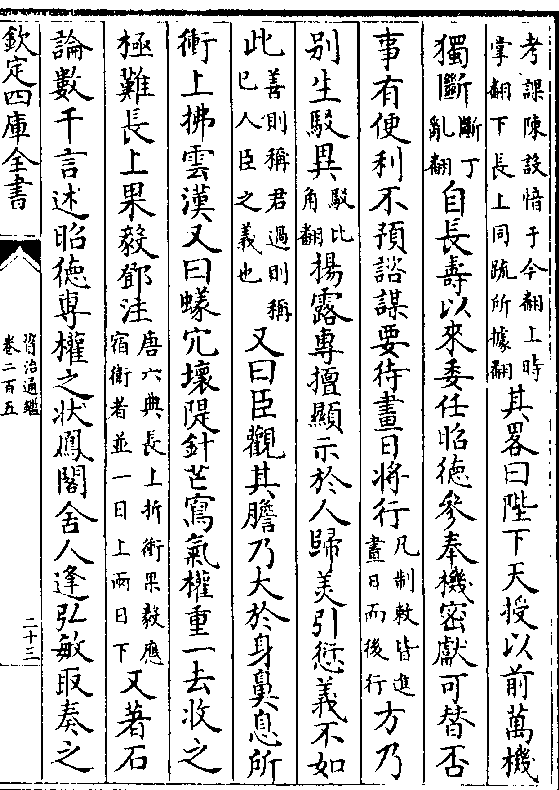 考課陳設愔于今翻上時
掌翻下長上同䟽所據翻
其畧曰陛下天授以前萬機
獨斷
斷丁
亂翻
自長壽以來委任昭德參奉機密獻可替否
事有便利不預諮謀要待畫日將行
凡制敕皆進
畫日而後行
方乃
别生駮異
駮比
角翻
揚露專擅顯示於人歸美引愆義不如
此
善則稱君過則稱
已人臣之義也
又曰臣觀其膽乃大於身鼻息所
衝上拂雲漢又曰蟻穴壞隄針芒寫氣權重一去收之
極難長上果毅鄧注
唐六典長上折衝果毅應
宿衛者並一日上兩日下
又著石
論數千言述昭德專權之狀鳳閣舍人逢弘敏取奏之
欽定四庫全書
資治通鑑
卷二百五
二十三